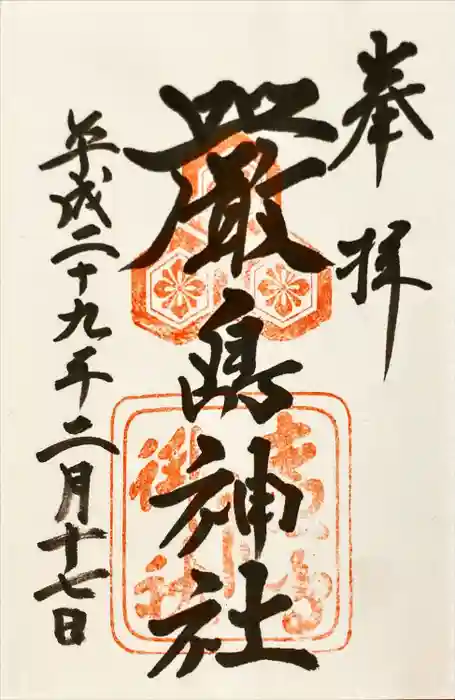 奉拝
嚴島神社
平成二十九年二月十七日